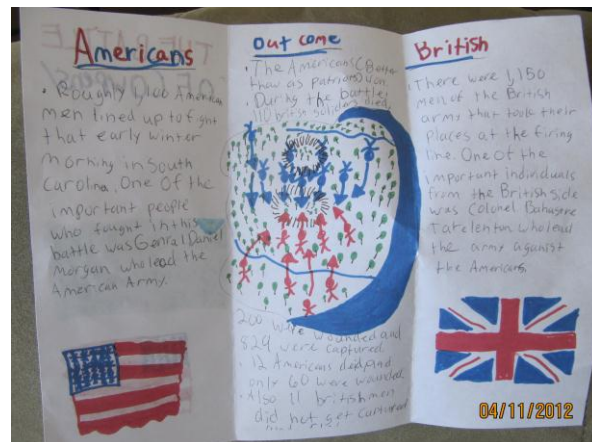 Americans
· Roughly American
men lined up to fight
that early winter
morning in South
Carolina. One of the
important people
who fought in this
battle was Genral Daniel
Morgan who lead the
American Army.
Out come
· The Americans (Better
as patriots) won
· During the battle
110 soliders died,
200 were wounded and
829 were captured.
· 12 Americans died and
only 60 were wounded
· Also 11 british men
did not get
British
· There were 1,150
men of the British
army that took their
places at the firing
line. One of the
important individuals
from the British side
was Colonel
who lead
the army aganist
the Americans.
04/11/2012